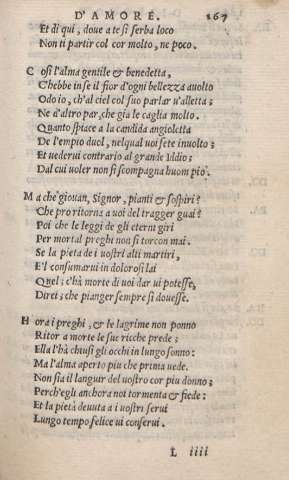 D'AMORE. 167
Et di qui, doue a te si serba loco
Non ti partir col cor molto, ne poco.
Cosi l'alma gentile & benedetta,
C'hebbe in se il fior d'ogni bellezza auolto
Odo io, ch'al ciel col suo parlar u'alletta;
Ne d'altro par, che gia le caglia molto.
Quanto spiace a la candida angioletta
De l'empio duol, nelqual uoi sete inuolto;
Et uederui contrario al grande Iddio;
Dal cui uoler non si scompagna huom pio.
Ma che giouan, Signor, pianti & sospiri?
Che pro ritorna a uoi del tragger guai?
Poi che le leggi de gli eterni giri
Per mortal preghi non si torcon mai.
Se la pieta de i uostri alti martiri,
E'l consumarui in dolorosi lai
Quel, c'hà morte di uoi dar ui potesse,
Direi; che pianger sempre si douesse.
Hora i preghi, & le lagrime non ponno
Ritor a morte le sue ricche prede;
Ella l'hà chiusi gli occhi in lungo sonno:
Ma l'alma aperto piu che prima uede.
Non sia il languir del uostro cor piu donno;
Perch'egli anchora noi tormenta & fiede:
Et la pietà deuuta a i uostri serui
Lungo tempo felice ui conserui.
L iiii